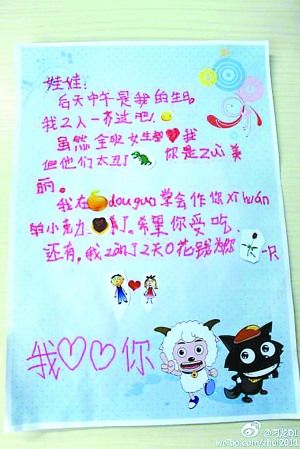 娃娃：
后天中午是我的生日,
我2人一齐过吧!
虽然全班女生都❤我
但他们太丑了 你是Zui美
丽。
我在 douguo学会作你xǐhuán
的小 力 了。希望你爱吃
还有,我 了2天0花钱 你 一只
我♡♡你
weibo.com/zhui2011